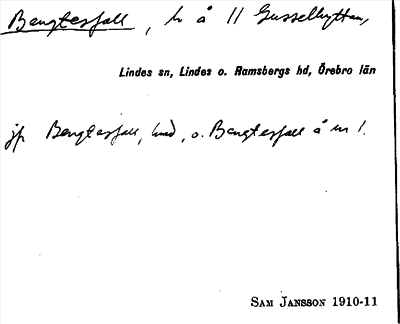 Bengtesfall, h å 11 Gusselhyttan,
Lindes sn, Lindes o. Ramsbergs hd, Örebro län
jfr Bengtesfall, hmd, o. Bengtesfall å nr 1.
SAM JANSSON 1910-11